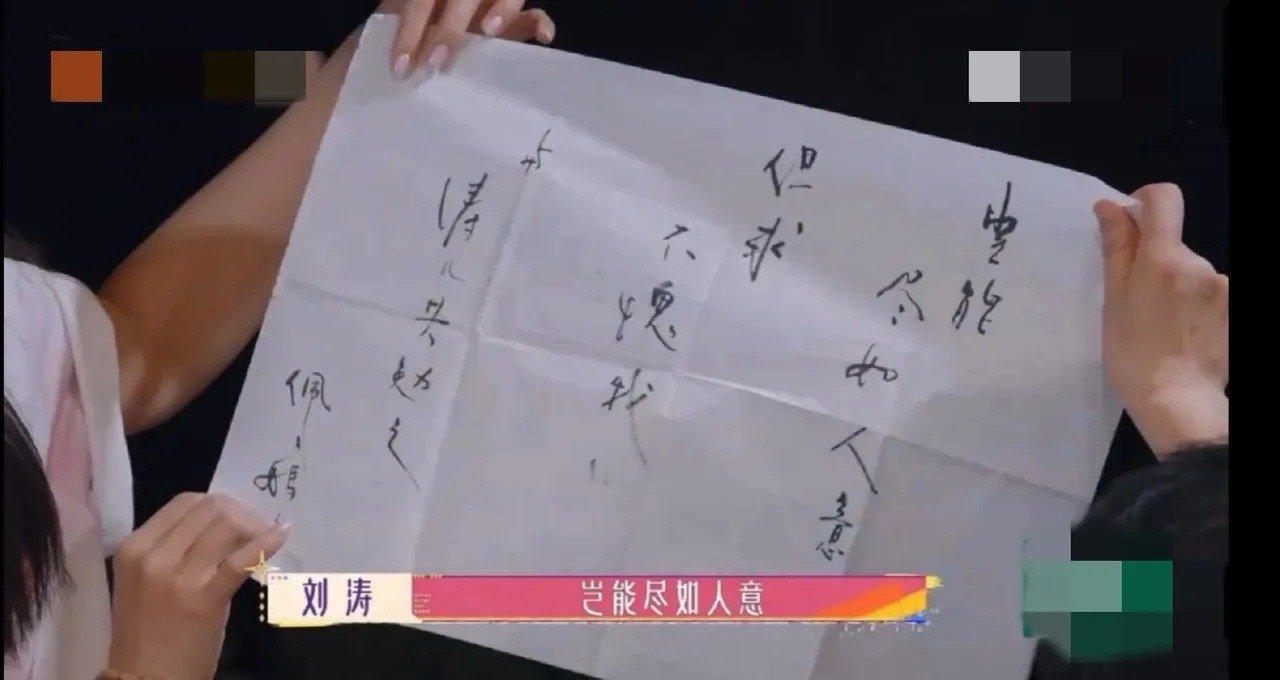 豈能
尽如人意
但求
不愧我心
与
涛儿共勉之
佩〻媽〻
刘涛
岂能尽如人意